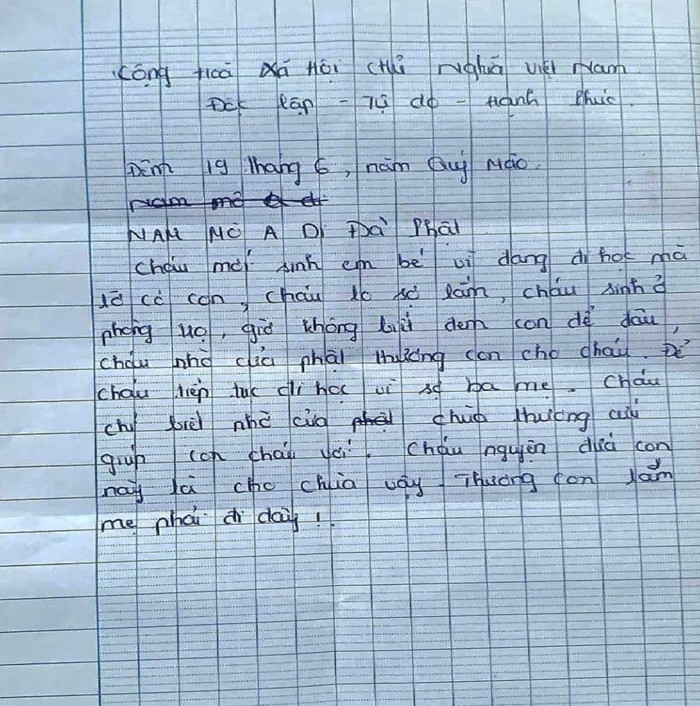 Cộng Hoà Xã Hội Chủ Nghĩa Việt Nam
Độc lập - Tự do - Hạnh Phúc.
Đêm 19 tháng 6, năm Quý Mão.
Nam mô a di
NAM MÔ A DI ĐÀ Phật
Cháu mới sinh em bé vì đang đi học mà
lỡ có con, cháu lo sợ lắm, cháu sinh ở
phòng trọ, giờ không biết đem con để đâu,
cháu nhờ cửa phật thương con cho cháu. Để
cháu tiếp tục đi học vì sợ ba mẹ. Cháu
chỉ biết nhờ cửa phật chùa thương cứu
giúp con cháu với. Cháu nguyện đứa con
này là cho chùa vậy. Thương con lắm
mẹ phải đi đây!.